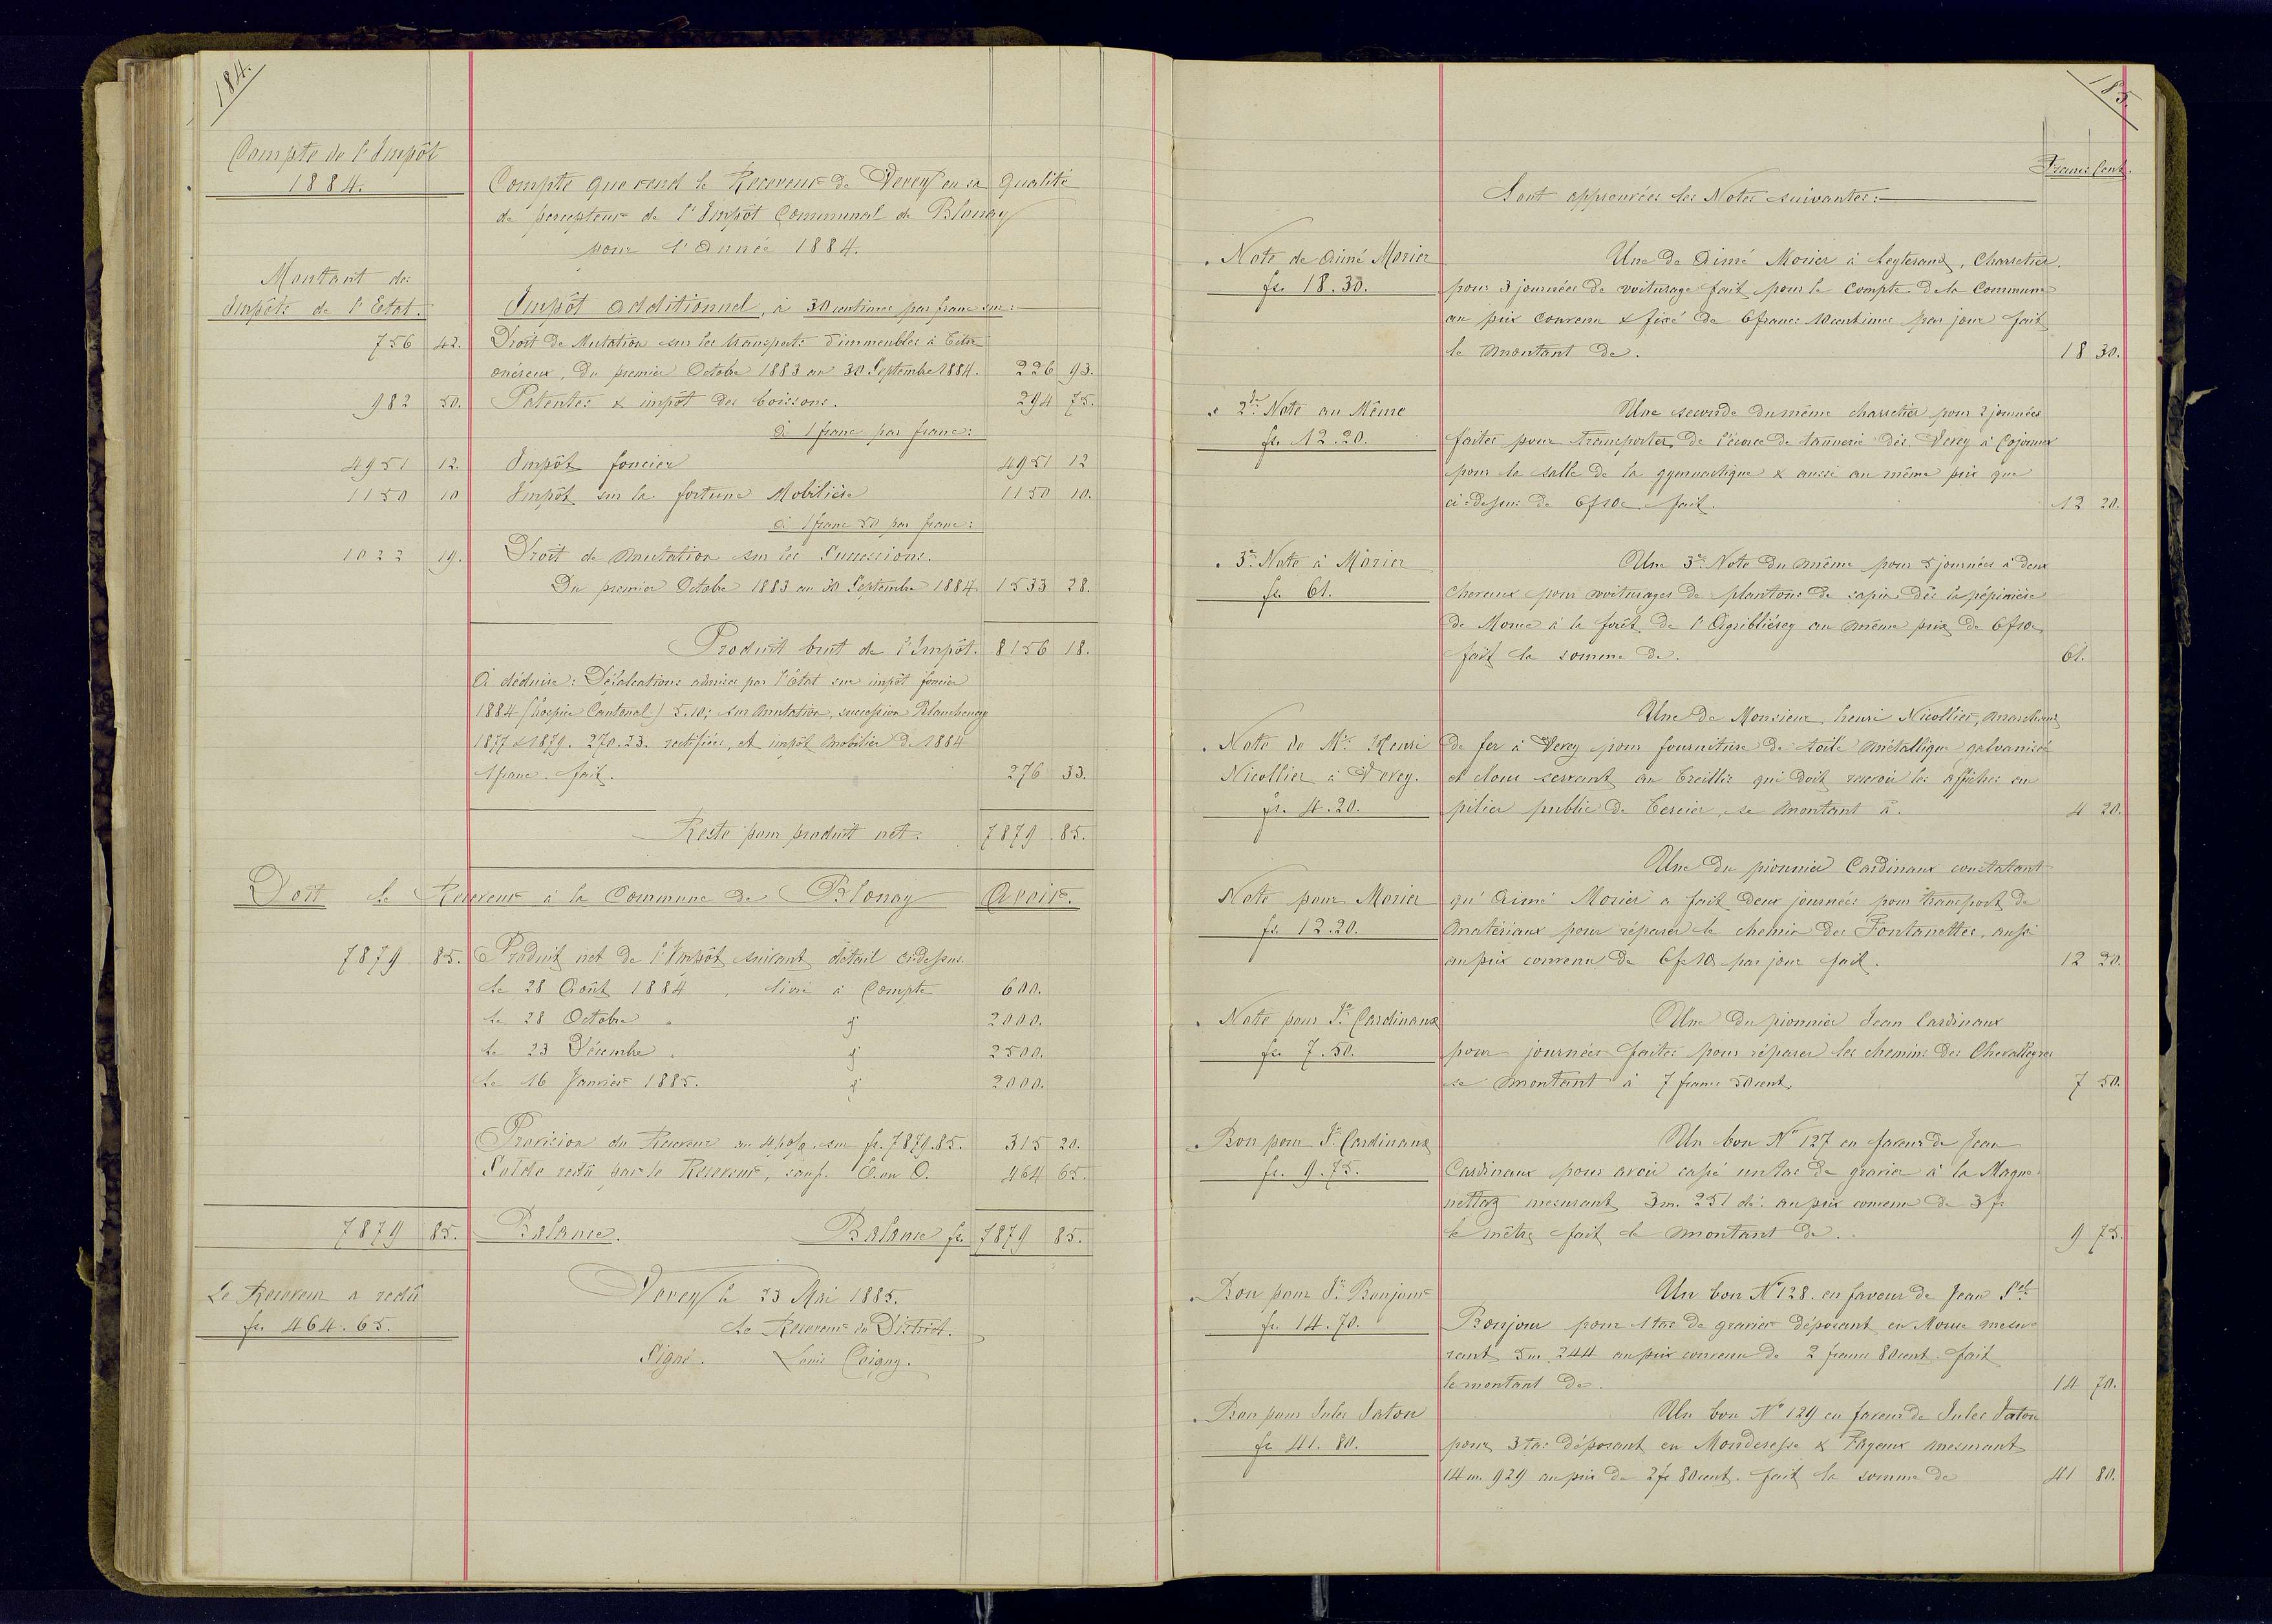 184.
Compte de l'Impôt
1884.
Compte que rend le Receveur de Vevey en sa qualité
de percepteur de l'Impôt Communal de Blonay
pour l'Année 1884.
Montant des
Impôts de l'Etat.
Impôt additionnel, à 30 centimes par franc sur:
756 42. Droit de Mutation sur les transports d'immeubles à titre
onéreux, Du premier Octobre 1883 au 30 Septembre 1884. 226 93.
982 50. Patentes & impôt des boissons. 294 75.
à 1 franc par franc:
4951 12. Impôt foncier 4951 12
1150 10 Impôt sur la fortune Mobilière 1150 10.
à 1 franc 50 par franc:
1022 19. Droit de mutation sur les Successions.
Du premier Octobre 1883 au 30 Septembre 1884. 1533 28.
Produit brut de l'Impôt. 8156 18.
A déduire: Défalcations admises par l'Etat sur impôt foncier
1884 (hospice Cantonal) 5.10; sur mutation, succession Blanchenay
1877 & 1879. 270.23. rectifiées, et impôt mobilier de 1884
1 franc. fait. 276 33.
Reste pour produit net. 7879 85.
Doit le Receveur à la Commune de Blonay Avoir.
7879 85. Produit net de l'Impôt suivant détail ci-dessus.
Le 28 Août 1884, livré à Compte 600.
Le 28 Octobre " d° 2000.
Le 23 Décembre " d° 2500.
Le 16 Janvier 1885. d° 2000.
Provision du Receveur au 4 p% sur fr. 7879.85. 315 20.
Solde redû par le Receveur, sauf E. ou O. 464 65.
7879 85. Balance. Balance fr. 7879 85.
Le Receveur a redû
fr. 464.65.
Vevey le 23 Mai 1885.
Le Receveur du District.
Signé. Louis Coigny.
185.
Francs Cent.
Sont approuvées les Notes suivantes:
Note de Aimé Morier
fr. 18.30.
Une de Aimé Morier à Leyterand, Charretier.
pour 3 journées de voiturage fait pour le compte de la Commune
au prix convenu & fixé de 6 francs 10 centimes par jour fait
le montant de. 18 30.
2de Note au Même
fr. 12.20.
Une seconde du même charretier pour 2 journées
faites pour transporter de l'écorce de tannerie dès Vevey à Cojonnex
pour la salle de la gymnastique & aussi au même prix que
ci-dessus de 6f 10c fait. 12 20.
3e Note à Morier
fr. 61.
Une 3e Note du même pour 5 journées à deux
Chevaux pour voiturages de plantons de sapin dès la pépinière
de Mouce à la forêt de l'Agribliérey au même prix de 6f 10c
fait la somme de. 61.
Note de Mr. Henri
Nicollier à Vevey.
fr. 4.20.
Une de Monsieur henri Nicollier, marchand
de fer à Vevey pour fourniture de toile métallique galvanisée
et clous servant au treillis qui doit recevoir les affiches au
pilier public de Tercier, se montant à. 4 20.
Note pour Morier
fr. 12.20.
Une du pionnier Cardinaux constatant
qu'Aimé Morier a fait deux journées pour transport de
matériaux pour réparer le chemin des Fontanettes, aussi
au prix convenu de 6fr 10 par jour fait. 12 20.
Note pour Jn. Cardinaux
fr. 7.50.
Une du pionnier Jean Cardinaux
pour journées faites pour réparer les chemins des Chevalleyres
se montant à 7 francs 50 cent. 7 50.
Bon pour Jn. Cardinaux
fr. 9.75.
Un bon No 127 en faveur de Jean
Cardinaux pour avoir cassé un tas de gravier à la Magne-
nettaz mesurant 3m. 251 dé. au prix convenu de 3 fr
le mètre fait le montant de. 9 75.
Bon pour Jn. Bonjour
fr. 14.70.
Un bon No 128. en faveur de Jean
Bonjour pour 1 tas de gravier déposant en Mouce mesu-
rant 5m. 244 au prix convenu de 2 francs 80 cent. fait
le montant de. 14 70.
Bon pour Jules Jaton
fr. 41.80.
Un bon No 129 en faveur de Jules Jaton
pour 3 tas déposant en Monderesse & Fayeux mesurant
14 m. 929 au prix de 2 fr 80 cent. fait la somme de 41 80.